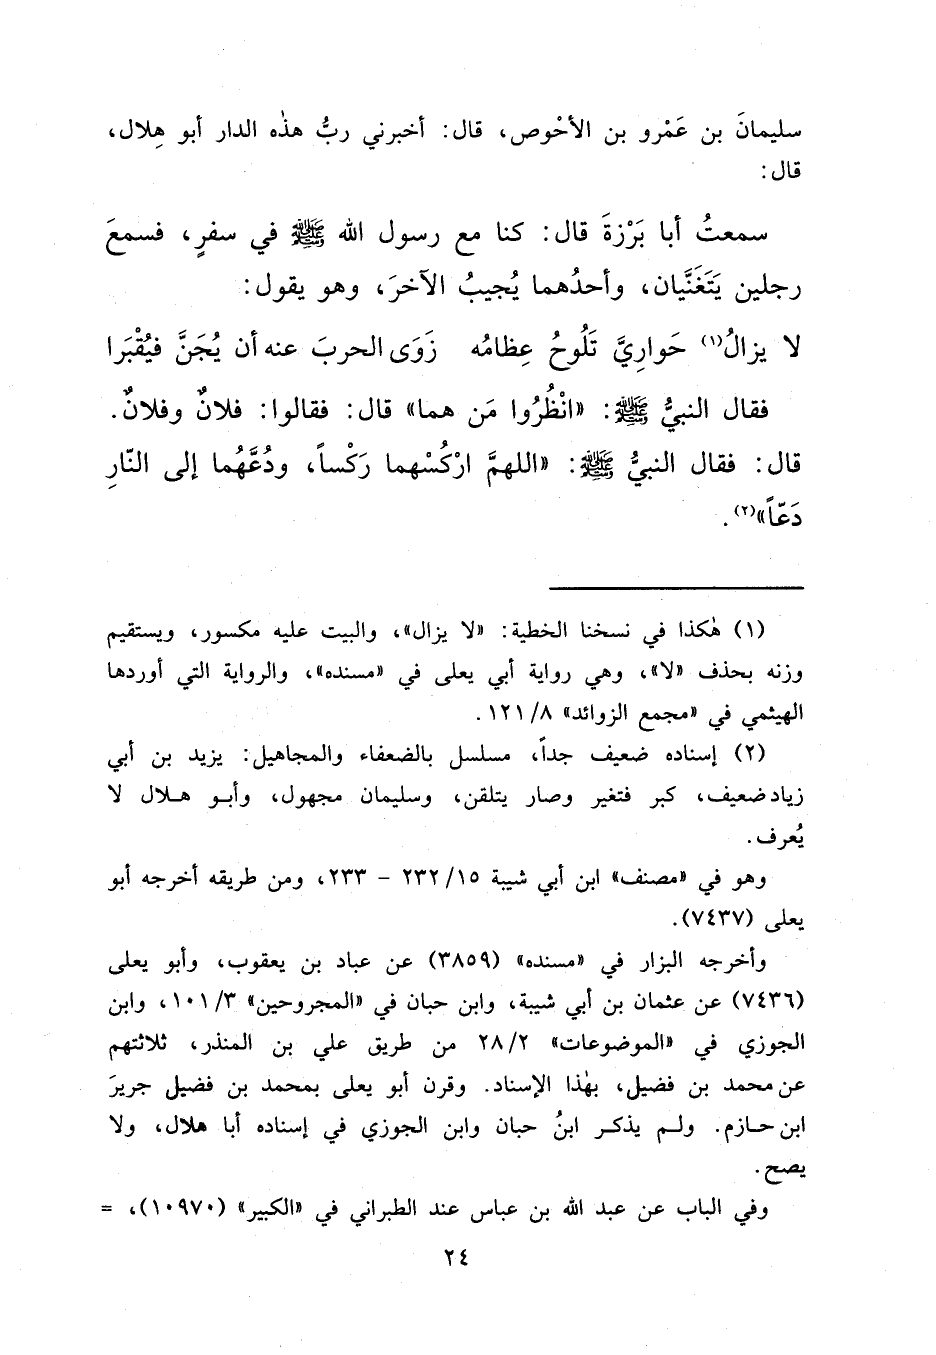 سليمانَ بن عَمْرو بن الأحْوص، قال: أخبرني ربُّ هذه الدار أبو هِلال،
قال:
سمعتُ أبا بَرْزةَ قال: كنا مع رسول الله ﷺ في سفرٍ، فسمعَ
رجلين يَتَغَنَّيان، وأحدُهما يُجيبُ الآخرَ، وهو يقول:
لا يزالُ(١) حَوارِيَّ تَلُوحُ عِظامُه زَوَى الحربَ عنه أن يُجَنَّ فيُقْبَرا
فقال النبيُّ ﷺ: «انْظُرُوا مَن هما» قال: فقالوا: فلانٌ وفلانٌ.
قال: فقال النبيُّ ﷺ: «اللهمَّ ارْكُسْهما رَكْساً، ودُعَّهُما إلى النَّارِ
دَعّاً»(٢).
(١) هٰكذا في نسخنا الخطية: «لا يزال»، والبيت عليه مكسور، ويستقيم
وزنه بحذف «لا»، وهي رواية أبي يعلى في «مسنده»، والرواية التي أوردها
الهيثمي في «مجمع الزوائد» ١٢١/٨.
(٢) إسناده ضعيف جداً، مسلسل بالضعفاء والمجاهيل: يزيد بن أبي
زياد ضعيف، كبر فتغير وصار يتلقن، وسليمان مجهول، وأبو هلال لا
يُعرف.
وهو في «مصنف» ابن أبي شيبة ٢٣٢/١٥ - ٢٣٣، ومن طريقه أخرجه أبو
يعلى (٧٤٣٧).
وأخرجه البزار في «مسنده» (٣٨٥٩) عن عباد بن يعقوب، وأبو يعلى
(٧٤٣٦) عن عثمان بن أبي شيبة، وابن حبان في «المجروحين» ١٠١/٣، وابن
الجوزي في «الموضوعات» ٢٨/٢ من طريق علي بن المنذر، ثلاثتهم
عن محمد بن فضيل، بهٰذا الإسناد. وقرن أبو يعلى بمحمد بن فضيل جريرَ
ابن حازم. ولم يذكر ابنُ حبان وابن الجوزي في إسناده أبا هلال، ولا
يصح.
وفي الباب عن عبد الله بن عباس عند الطبراني في «الكبير» (١٠٩٧٠)، =
٢٤